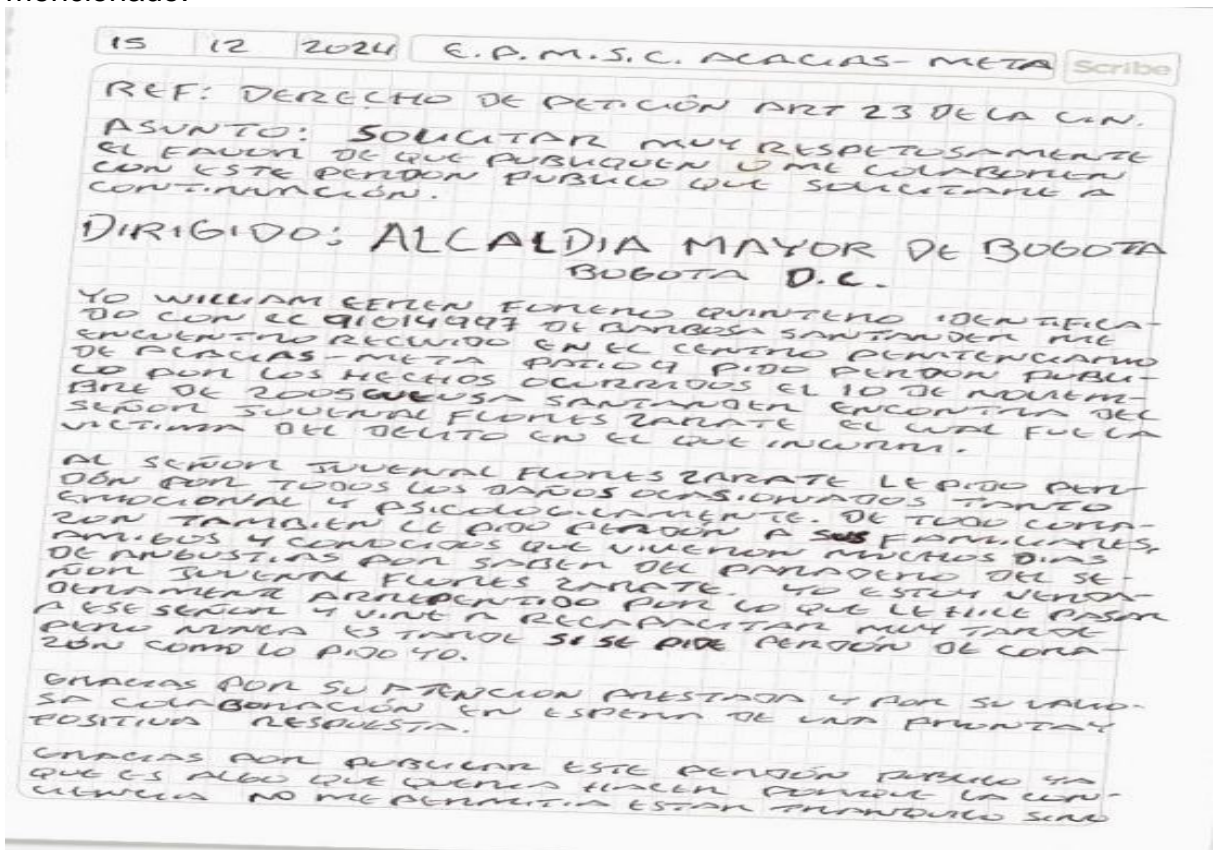 mencionado.
15 12 2024 E.P.M.S.C. ACACIAS-META Scribe
REF: DERECHO DE PETICIÓN ART 23 DE LA C.N.
ASUNTO: SOLICITAR MUY RESPETUOSAMENTE
EL FAVOR DE QUE PUBLIQUEN O ME COLABOREN
CON ESTE PERDON PUBLICO QUE SOLICITARE A
CONTINUACIÓN.
DIRIGIDO: ALCALDIA MAYOR DE BOGOTA
BOGOTA D.C.
YO WILLIAM FORERO QUINTERO IDENTIFICA-
DO CON CC 91014997 DE BARBOSA SANTANDER ME
ENCUENTRO RECLUIDO EN EL CENTRO PENITENCIARIO
DE ACACIAS-META PATIO 4 PIDO PERDON PUBLI-
CO POR LOS HECHOS OCURRIDOS EL 10 DE NOVIEM-
BRE DE 2005 SANTANDER ENCONTRA DEL
SEÑOR JUVENAL FLORES ZARATE EL CUAL FUE LA
VICTIMA DEL DELITO EN EL QUE INCURRI.
AL SEÑOR JUVENAL FLORES ZARATE LE PIDO PER-
DÓN POR TODOS LOS DAÑOS OCASIONADOS TANTO
EMOCIONAL Y PSICOLOGICAMENTE. DE TODO CORA-
ZON TAMBIEN LE PIDO PERDÓN A SUS FAMILIARES,
AMIGOS Y CONOCIDOS QUE VIVIERON MUCHOS DIAS
DE ANGUSTIAS POR SABER DEL PARADERO DEL SE-
ÑOR JUVENAL FLORES ZARATE. YO ESTOY VERDA-
DERAMENTE ARREPENTIDO POR LO QUE LE HICE PASAR
A ESE SEÑOR Y VINE A RECAPACITAR MUY TARDE
PERO NUNCA ES TARDE SI SE PIDE PERDÓN DE CORA-
ZÓN COMO LO PIDO YO.
GRACIAS POR SU ATENCION PRESTADA Y POR SU VALIO-
SA COLABORACIÓN EN ESPERA DE UNA PRONTA Y
POSITIVA RESPUESTA.
GRACIAS POR PUBLICAR ESTE PERDÓN PUBLICO YA
QUE ES ALGO QUE QUERIA HACER PORQUE LA CON-
CIENCIA NO ME PERMITIA ESTAR TRANQUILO SINO